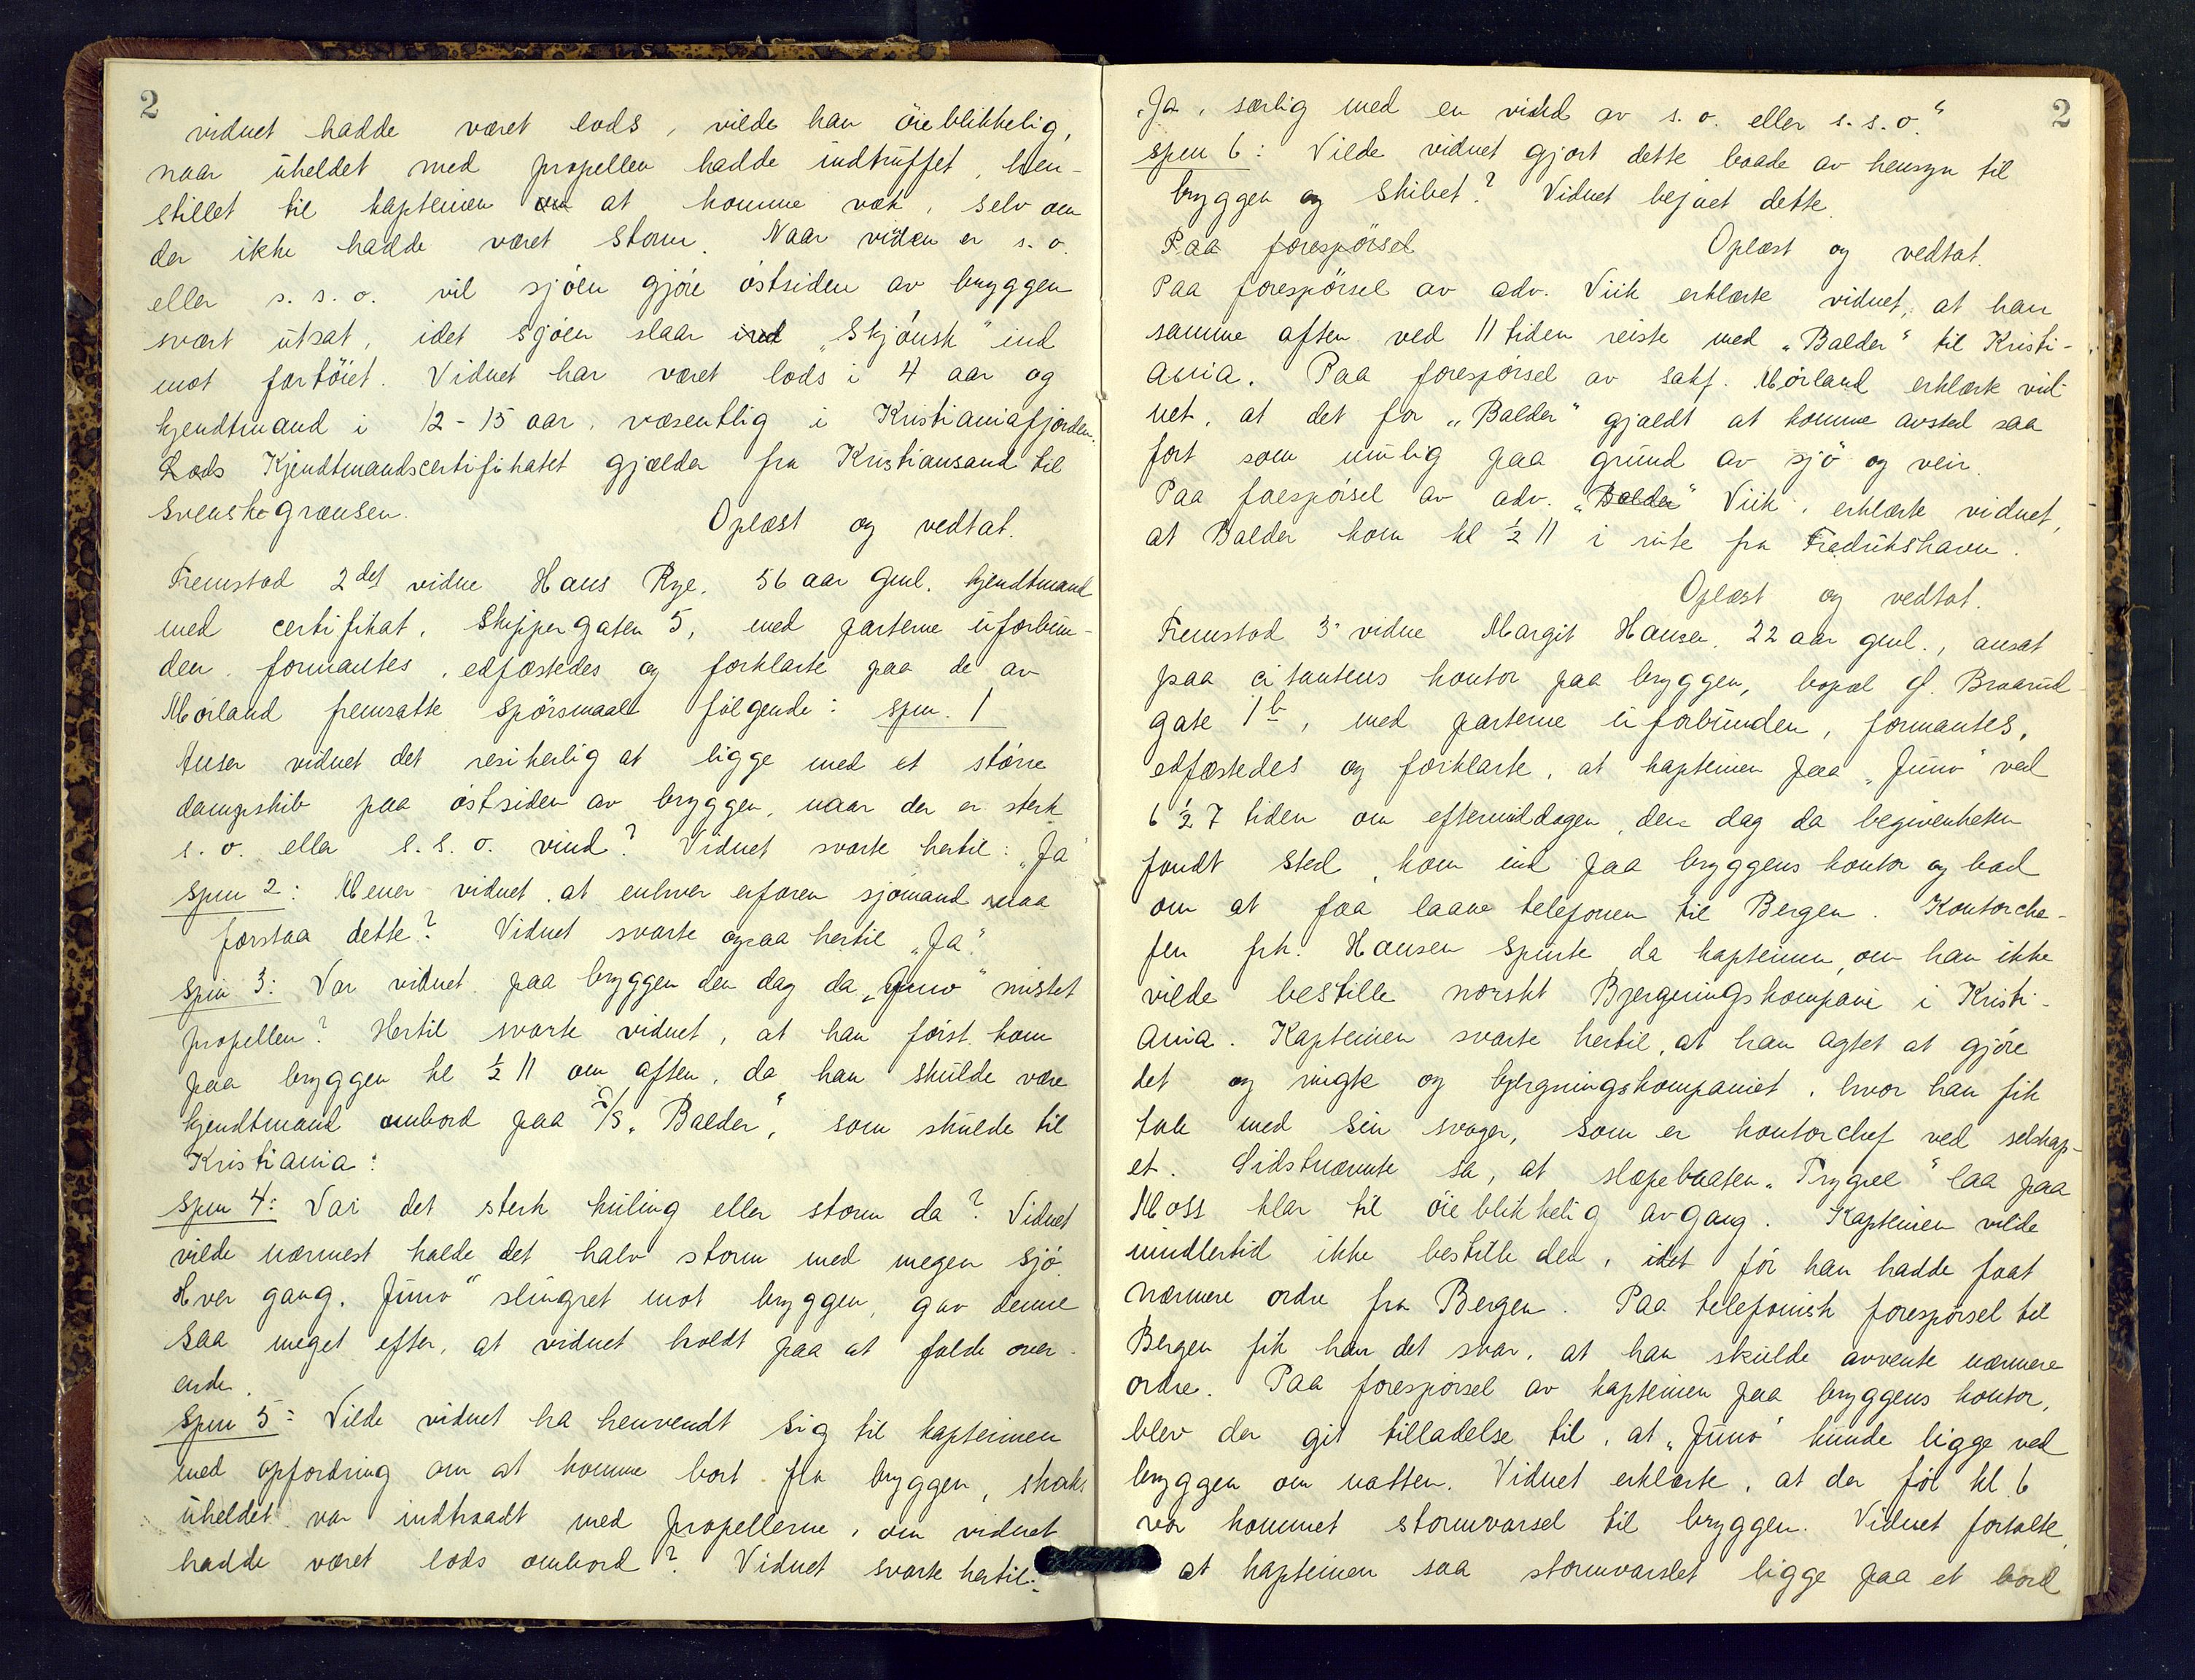 2
vidnet hadde været lods, vilde han öieblikkelig,
naar uheldet med propellen hadde indtruffet, hen-
stillet til kapteinen om at komme væk, selv om
der ikke hadde været storm. Naar vinden er s. o.
eller s. s. o. vil sjöen gjöre östsiden av bryggen
svært utsat, idet sjöen slaar ind „Skjönsk" ind
mot fartöiet. Vidnet har været lods i 4 aar og
kjendtmand i 12-15 aar, væsentlig i Kristianiafjorden.
Lods Kjendtmandscertifikatet gjælder fra Kristiansand til
Svenskegrænsen.
Oplæst og vedtat.
Fremstod 2det vidne Hans Rye, 56 aar gml. kjendtmand
med certifikat, Skippergaten 5, med parterne uforbun-
den, formantes, edfæstedes og forklarte paa de av
Mörland fremsatte spörsmaal fölgende: spm. 1
Anser vidnet det resikerlig at ligge med et större
dampskib paa östsiden av bryggen, naar der er sterk
s. o. eller s. s. o. vind? Vidnet svarte hertil: „Ja"
spm 2: Mener vidnet, at enhver erfaren sjömand maa
forstaa dette? Vidnet svarte ogsaa hertil „Ja".
spm 3: Var vidnet paa bryggen den dag da „Juno" mistet
propellen? Hertil svarte vidnet, at han först kom
paa bryggen kl ½ 11 om aften, da han skulde være
kjendtmand ombord paa S/S „Balder", som skulde til
Kristiania:
spm 4: Var det sterk kuling eller storm da? Vidnet
vilde nærmest holde det halv storm med megen sjö.
Hver gang „Juno" slingret mot bryggen, gav denne
saa meget efter, at vidnet holdt paa at falde over-
ende.
spm 5: Vilde vidnet ha henvendt sig til kapteinen
med opfordring om at komme bort fra bryggen, straks
uheldet var indtraadt med propellerne, om vidnet
hadde været lods ombord? Vidnet svarte hertil:
2
„Ja, særlig med en vind av s. o. eller s. s. o."
spm 6: Vilde vidnet gjort dette baade av hensyn til
bryggen og skibet? Vidnet bejaet dette.
Paa forespörsel Oplæst og vedtat.
Paa forespörsel av adv. Viik erklærte vidnet, at han
samme aften ved 11 tiden reiste med „Balder" til Kristi-
ania. Paa forespörsel av sakf. Mörland erklærte vid-
net, at det for „Balder" gjaldt at komme avsted saa
fort som mulig paa grund av sjö og veir.
Paa forespörsel av adv. „Balder" Viik, erklærte vidnet,
at Balder kom kl ½ 11 i rute fra Fredrikshavn.
Oplæst og vedtat.
Fremstod 3. vidne Margit Hansen, 22 aar gml., ansat
paa citantens kontor paa bryggen, bopæl Gl. Braarud-
gate 1b, med parterne uforbunden, formantes,
edfæstedes og forklarte, at kapteinen paa „Juno" ved
6 ½ 7 tiden om eftermiddagen, den dag da begivenheten
fandt sted, kom ind paa bryggens kontor og bad
om at faa laane telefonen til Bergen. Kontorche-
fen frk. Hansen spurte da kapteinen, om han ikke
vilde bestille norskt Bjergningskompani i Kristi-
ania. Kapteinen svarte hertil, at han agtet at gjöre
det og ringte og bjergningskompaniet, hvor han fik
tale med sin svoger, som er kontorchef ved selskap-
et. Sidstnævnte sa, at slæpebaaten „Trygve" laa paa
Moss klar til öieblikkelig avgang. Kapteinen vilde
imidlertid ikke bestille den, idet för han hadde faat
nærmere ordre fra Bergen. Paa telefonisk forespörsel til
Bergen fik han det svar, at han skulde avvente nærmere
ordre. Paa forespörsel av kapteinen paa bryggens kontor,
blev der git tilladelse til, at „Juno" kunde ligge ved
bryggen om natten. Vidnet erklærte, at der för kl 6
var kommet stormvarsel til bryggen. Vidnet fortalte,
at kapteinen saa stormvarslet ligge paa et bord